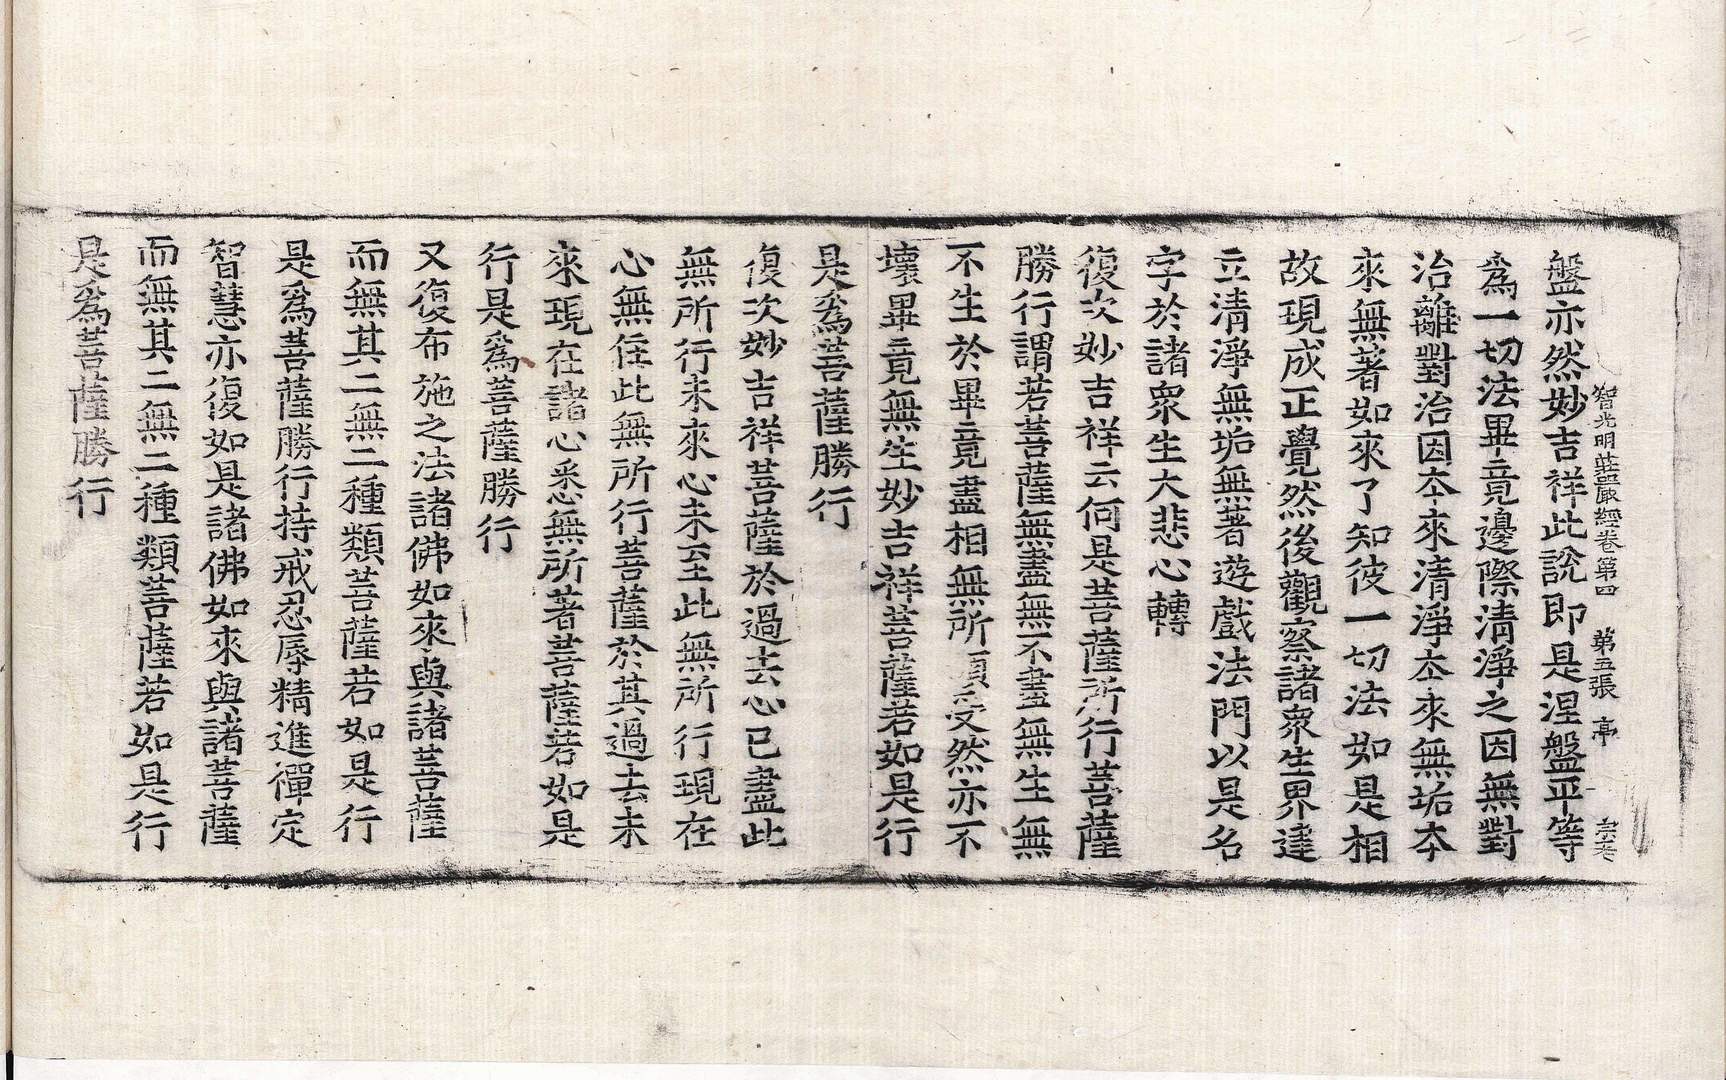 智光明莊嚴經卷第四 第五張 亭 宗老
盤亦然妙吉祥此說即是涅盤平等
爲一切法畢竟邊際清淨之因無對
治離對治因夲來清淨夲來無垢夲
來無著如來了知彼一切法如是相
故現成正覺然後觀察諸衆生界達
立清淨無垢無著遊戲法門以是名
字於諸衆生大悲心轉
復次妙吉祥云何是菩薩所行菩薩
勝行謂若菩薩無盡無不盡無生無
不生於畢竟盡相無所領受然亦不
壞畢竟無生妙吉祥菩薩若如是行
是爲菩薩勝行
復次妙吉祥菩薩於過去心已盡此
無所行未來心未至此無所行現在
心無住此無所行菩薩於其過去未
來現在諸心悉無所著菩薩若如是
行是爲菩薩勝行
又復布施之法諸佛如來與諸菩薩
而無其二無二種類菩薩若如是行
是爲菩薩勝行持戒忍辱精進禪定
智慧亦復如是諸佛如來與諸菩薩
而無其二無二種類菩薩若如是行
是爲菩薩勝行